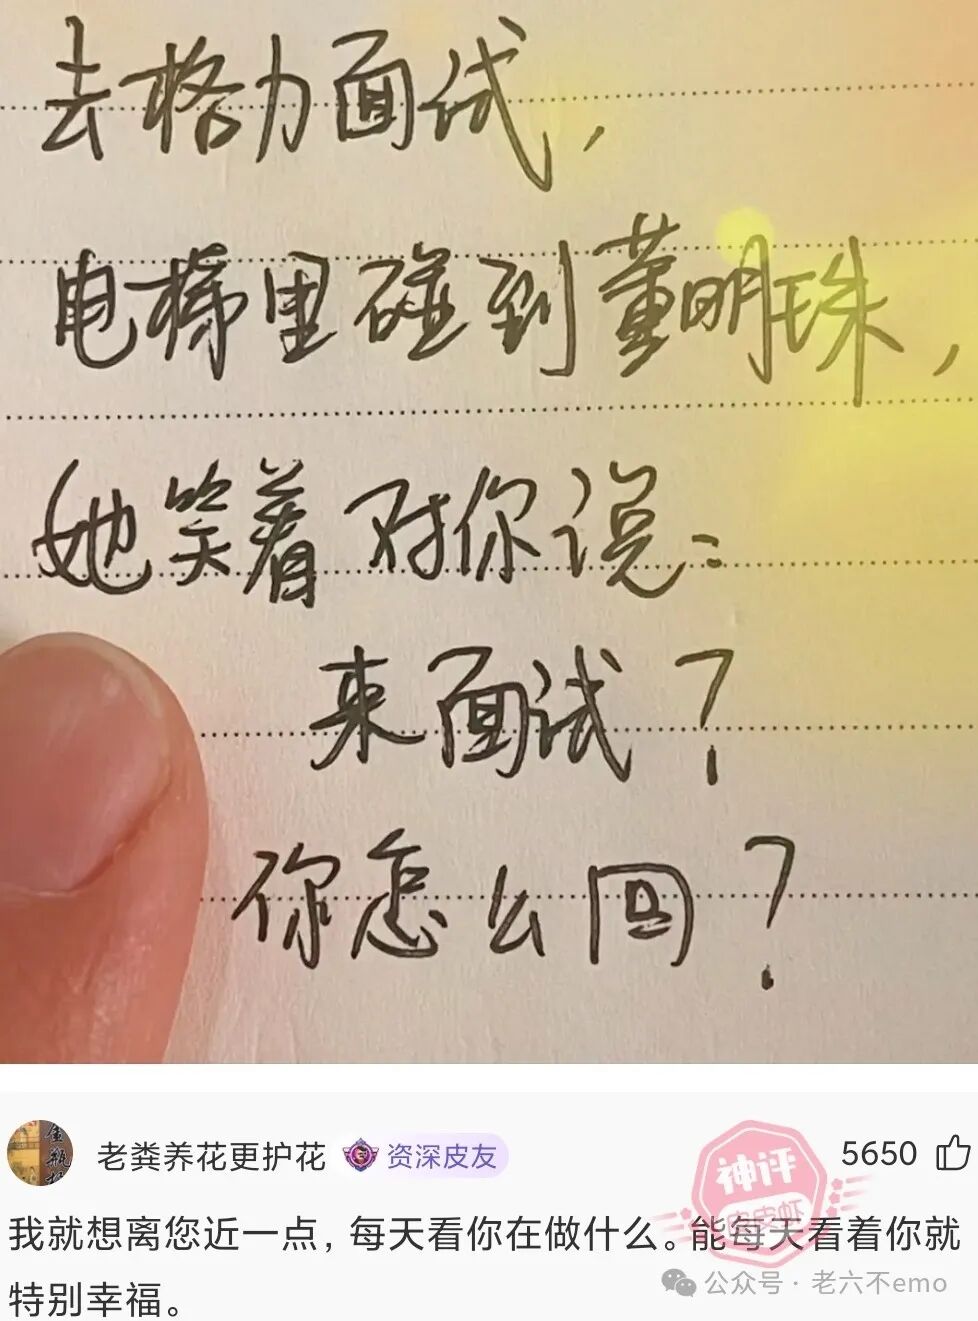 去格力面试，
电梯里碰到董明珠，
她笑着对你说：
来面试？
你怎么回？
老粪养花更护花 资深皮友 5650
神评
皮皮虾
我就想离您近一点，每天看你在做什么。能每天看着你就
特别幸福。
公众号·老六不emo